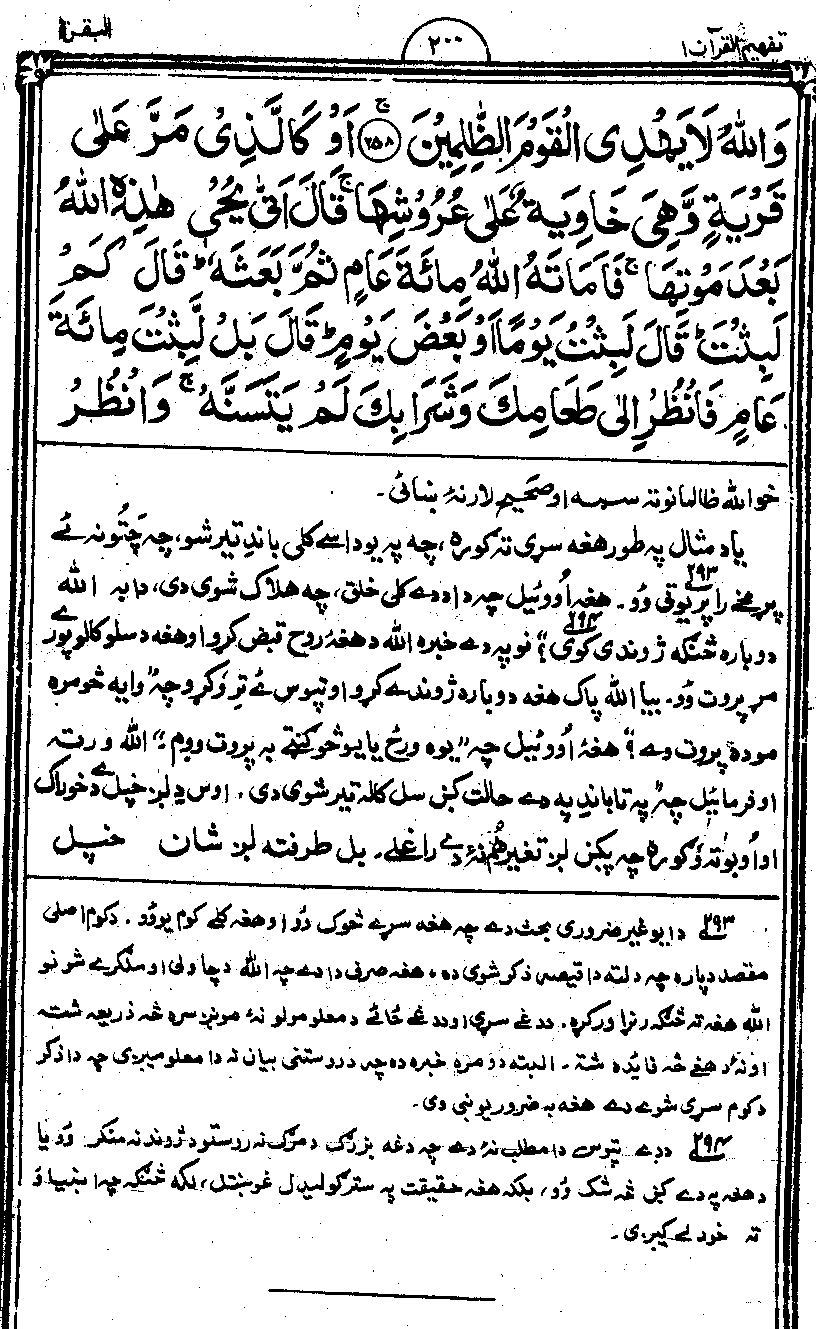 تفهيم القرآن ۱ ۲۰۰ البقرة
وَاللهُ لَا يَهْدِى الْقَوْمَ الظّٰلِمِيْنَ ﴿۲۵۸﴾ اَوْ كَالَّذِىْ مَرَّ عَلٰى
قَرْيَةٍ وَّهِىَ خَاوِيَةٌ عَلٰى عُرُوْشِهَا ۚ قَالَ اَنّٰى يُحْىٖ هٰذِهِ اللهُ
بَعْدَ مَوْتِهَا ۚ فَاَمَاتَهُ اللهُ مِائَةَ عَامٍ ثُمَّ بَعَثَهٗ ؕ قَالَ كَمْ
لَبِثْتَ ؕ قَالَ لَبِثْتُ يَوْمًا اَوْ بَعْضَ يَوْمٍ ؕ قَالَ بَلْ لَّبِثْتَ مِائَةَ
عَامٍ فَانْظُرْ اِلٰى طَعَامِكَ وَشَرَابِكَ لَمْ يَتَسَنَّهْ ۚ وَانْظُرْ
خو الله ظالمانو ته سمه او صحيح لار نۀ ښائى۔
يا د مثال په طور هغه سړى ته ګوره، چه په يو داسے کلى باندِ تير شو، چه چتُونه ئے
پړمخے راپريوتى وُو۔ ۲۹۳ هغه اُووئيل چه دا د دے کلى خلق، چه هلاک شوى دى، دا به الله
دوباره څنګه ژوندى کوى؟ ۲۹۴ نو په دے خبره الله د هغۀ روح قبض کړو او هغه د سلو کالو پورے
مړ پروت وُو۔ بيا الله پاک هغه دوباره ژوندے کړو او تپوس ئے ترِ وُکړو چه "وايه څومره
موده پروت وے؟ هغۀ اُووئيل چه "يوه ورځ يا يو څو ګنټے به پروت ووم"۔ الله ورته
اوفرمائيل چه "په تا باندِ په دے حالت کښِ سل کاله تير شوى دى۔ اوس دِ لږ خپل دِ خوراک
او اُوبو ته وُګوره چه پکښِ لږ تغير هُم نۀ دے راغلے۔ بل طرفته لږ شان خپل
۲۹۳ دا يو غير ضرورى بحث دے چه هغه سړے څوک وُو او هغه کلے کوم يو وُو۔ د کوم اصلى
مقصد دپاره چه دلته دا قيصه ذکر شوى ده، هغه صرف دا دے چه الله د چا ولى او ملګرے شو نو
الله هغه ته څنګه رنړا ورکړه۔ د دغے سړى او د دغے ځائے د معلومولو نۀ مونږ سره څه ذريعه شته
او نۀ د هغے څه فائده شته۔ البته دومره خبره ده چه د روستنى بيان نه دا معلوميږى چه دا ذکر
د کوم سړى شوے دے هغه به ضرور يو نبى وى۔
۲۹۴ د دے تپوس دا مطلب نۀ دے چه دغه بزرګ د مرګ نه روستو د ژوند نه منکر وُو يا
د هغه په دے کښِ څه شک وُو، بلکه هغه حقيقت په سترګو ليدل غوښتل، لکه څنګه چه انبيا ؤ
ته خودلے کيږى۔